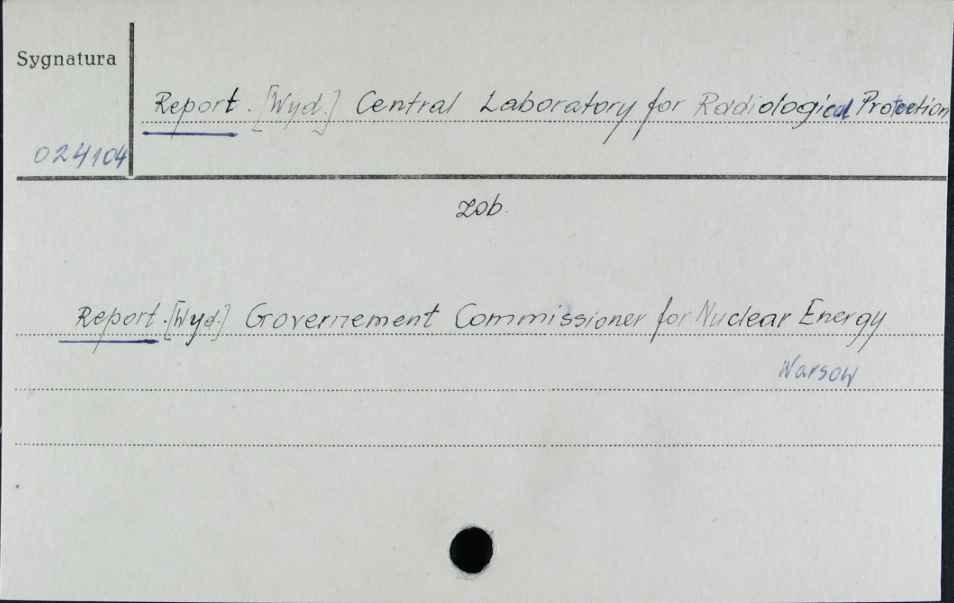 Sygnatura
Report. [Wyd.] Central Laboratory for Radiological Protection
024104
zob.
Report. [Wyd.] Governement Commissioner for Nuclear Energy
Warsow